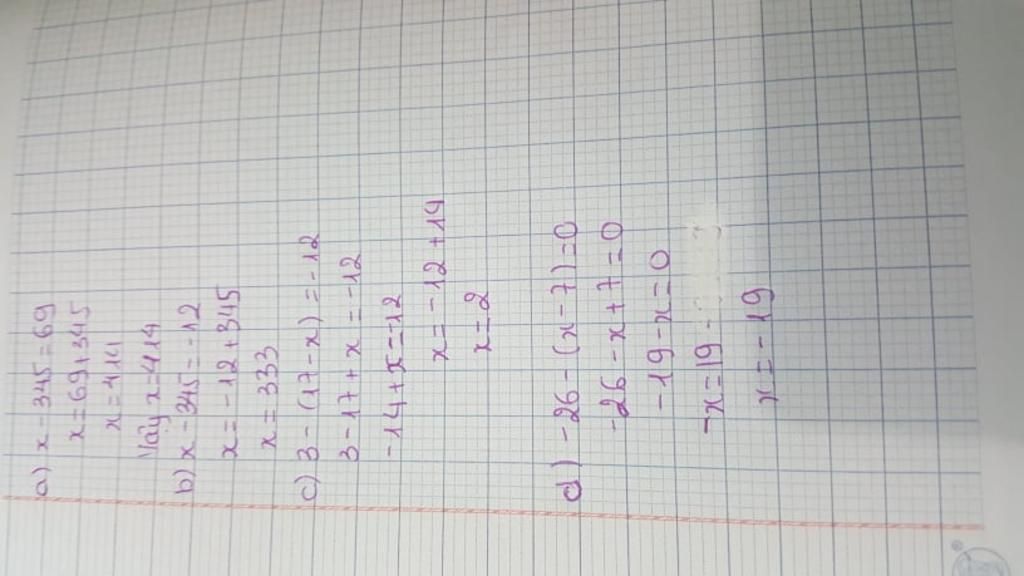 a) x - 345 = 69
x = 69 + 345
x = 414
Vậy x = 414
b) x - 345 = -12
x = -12 + 345
x = 333
c) 3 - (17 - x) = -12
3 - 17 + x = -12
-14 + x = -12
x = -12 + 14
x = 2
d) -26 - (x - 7) = 0
-26 - x + 7 = 0
-19 - x = 0
-x = 19
x = -19